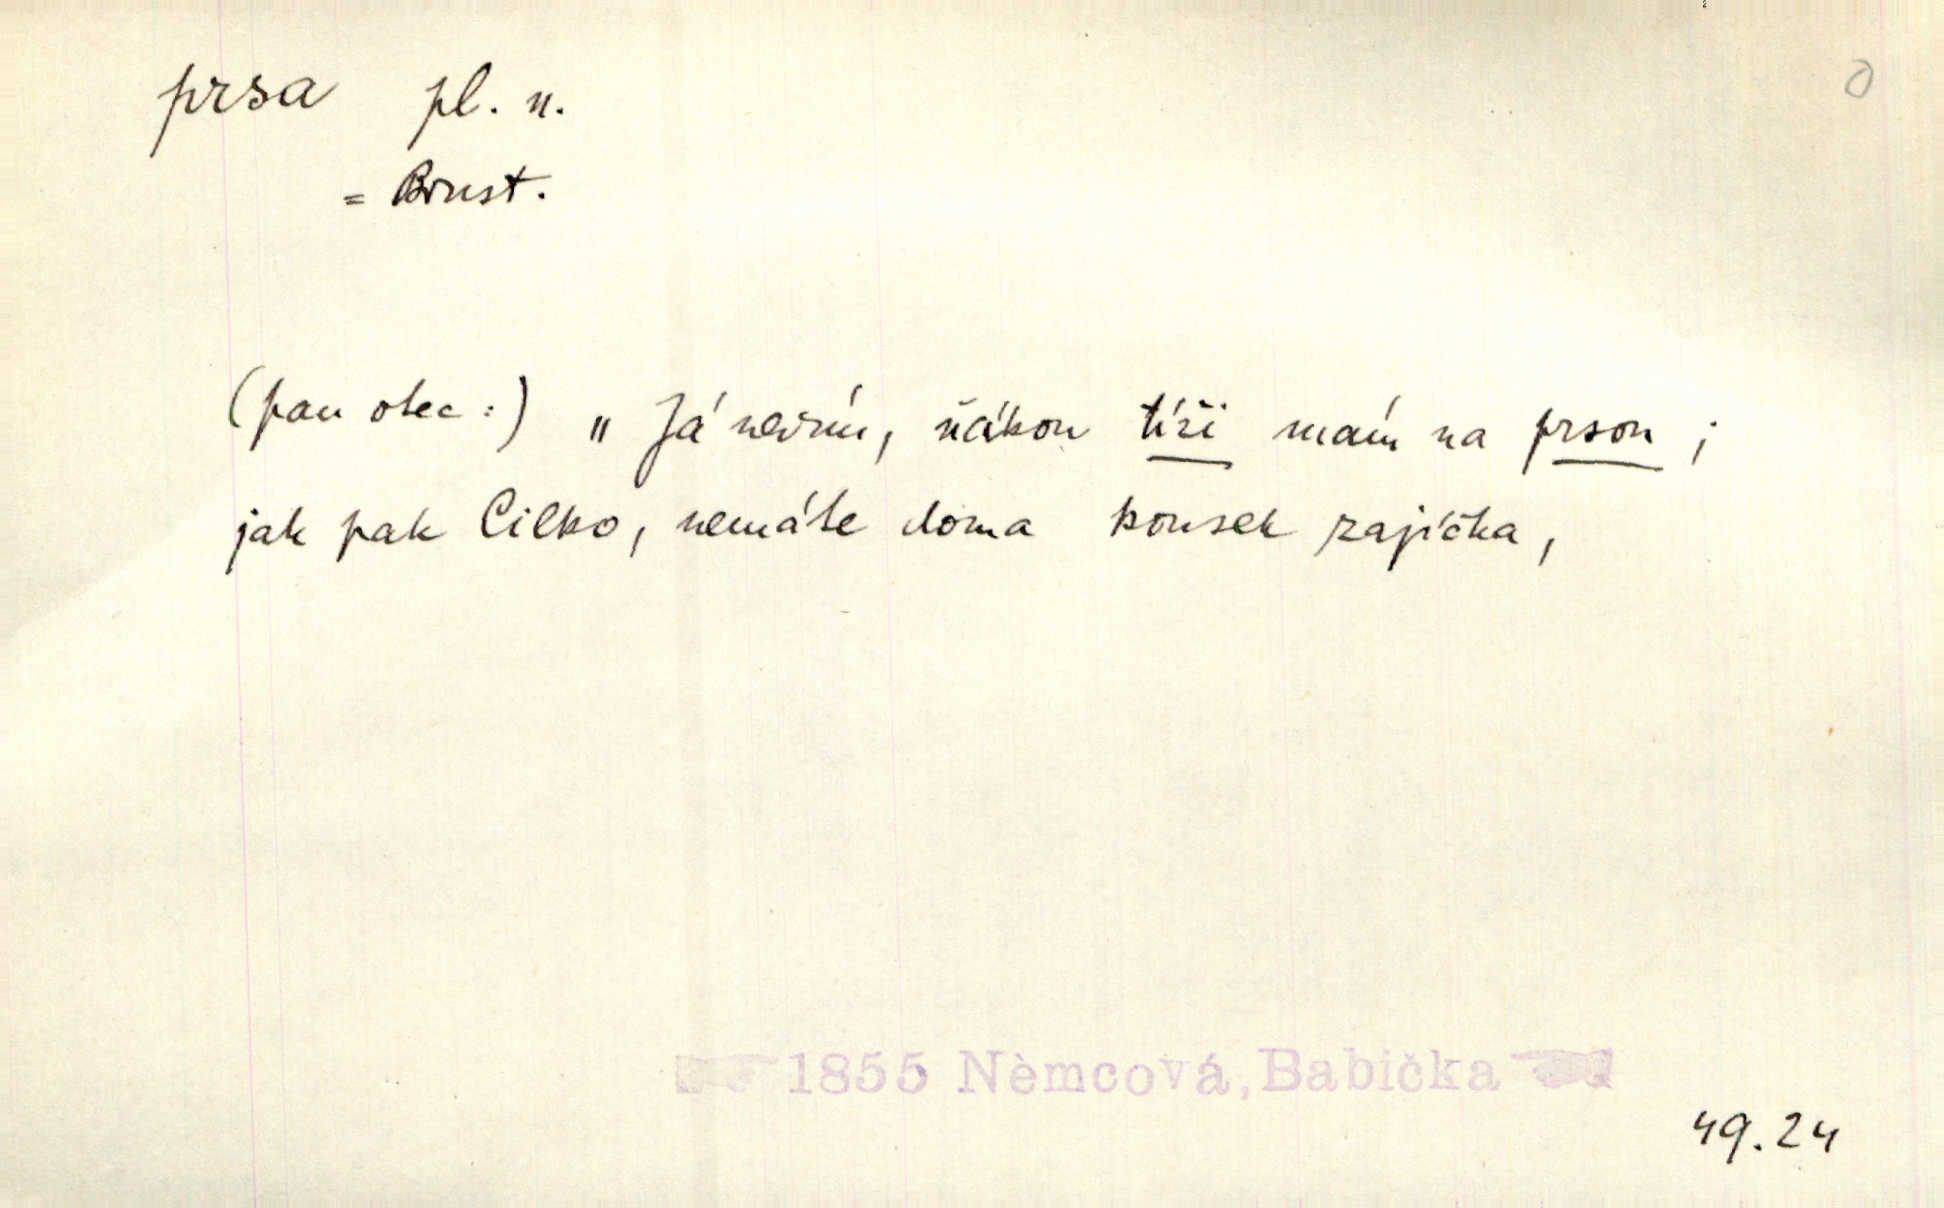 prsa pl. n.
= Brust.
(pan otec:) „Já nevím, ňákou tíži mám na prsou;
jak pak Cilko, nemáte doma kousek zajíčka,
1855 Němcová, Babička
49.24